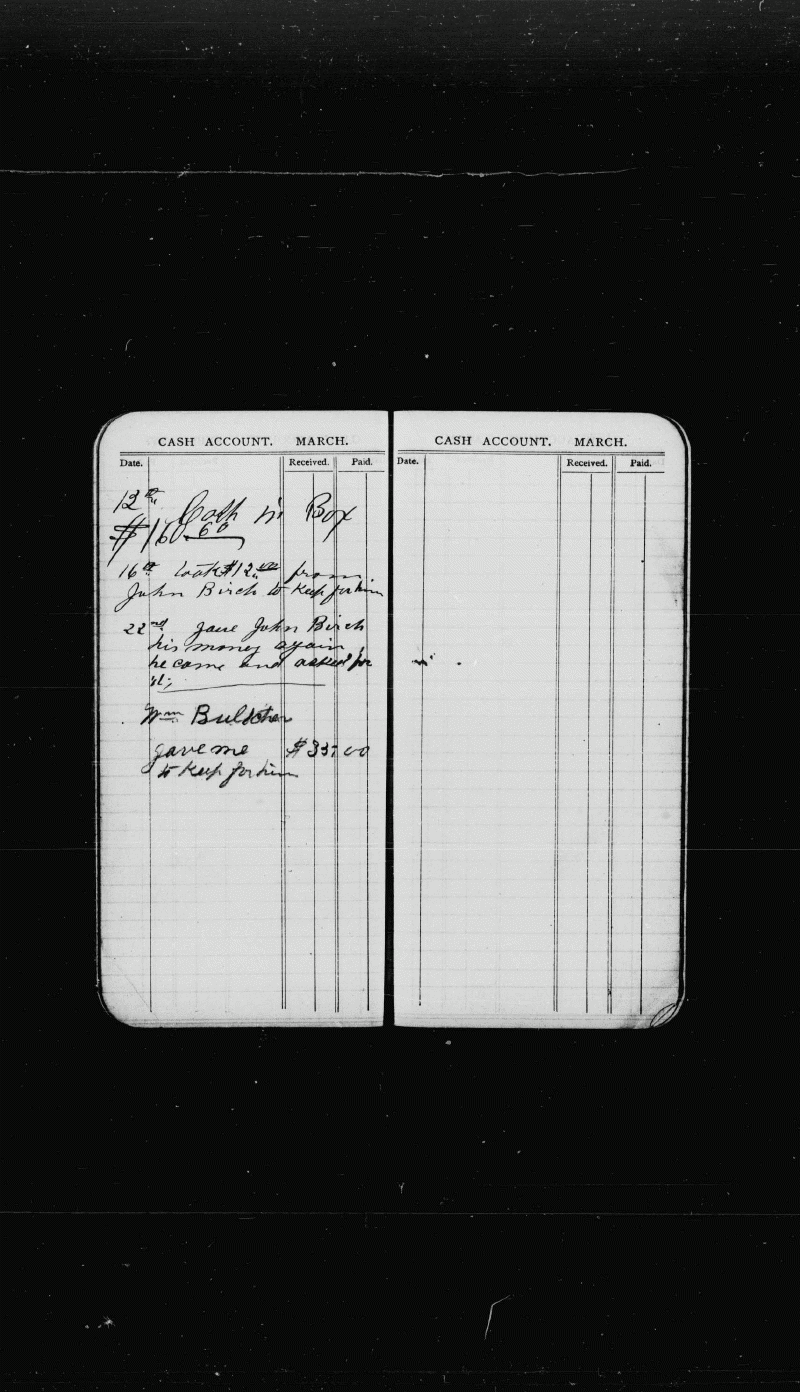 CASH ACCOUNT. MARCH.
Date. Received. Paid.
12th Cash in Box
$160 60
16th took $12.00 from
John Birch to keep for him
22nd gave John Birch
his money again
he came and asked for
it;
Wm
gave me $35.00
to keep for him
CASH ACCOUNT. MARCH.
Date. Received. Paid.